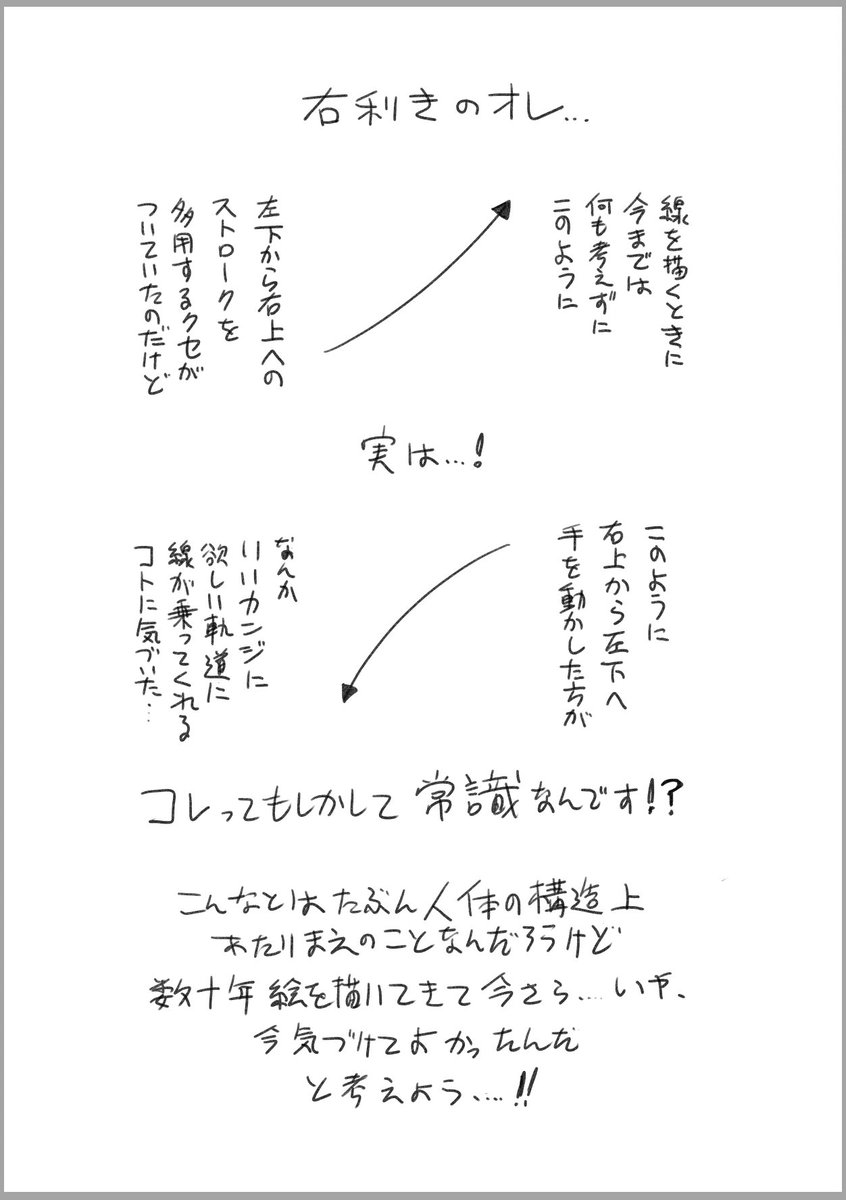 右利きのオレ…
線を描くときに
今までは
何も考えずに
このように
左下から右上への
ストロークを
多用するクセが
ついていたのだけど
実は…!
このように
右上から左下へ
手を動かした方が
なんか
いいカンジに
欲しい軌道に
線が乗ってくれる
コトに気づいた…
コレってもしかして常識なんです!?
こんなとはたぶん人体の構造上
あたりまえのことなんだろうけど
数十年絵を描いてきて今さら…いや、
今気づけてよかったんだ
と考えよう…!!